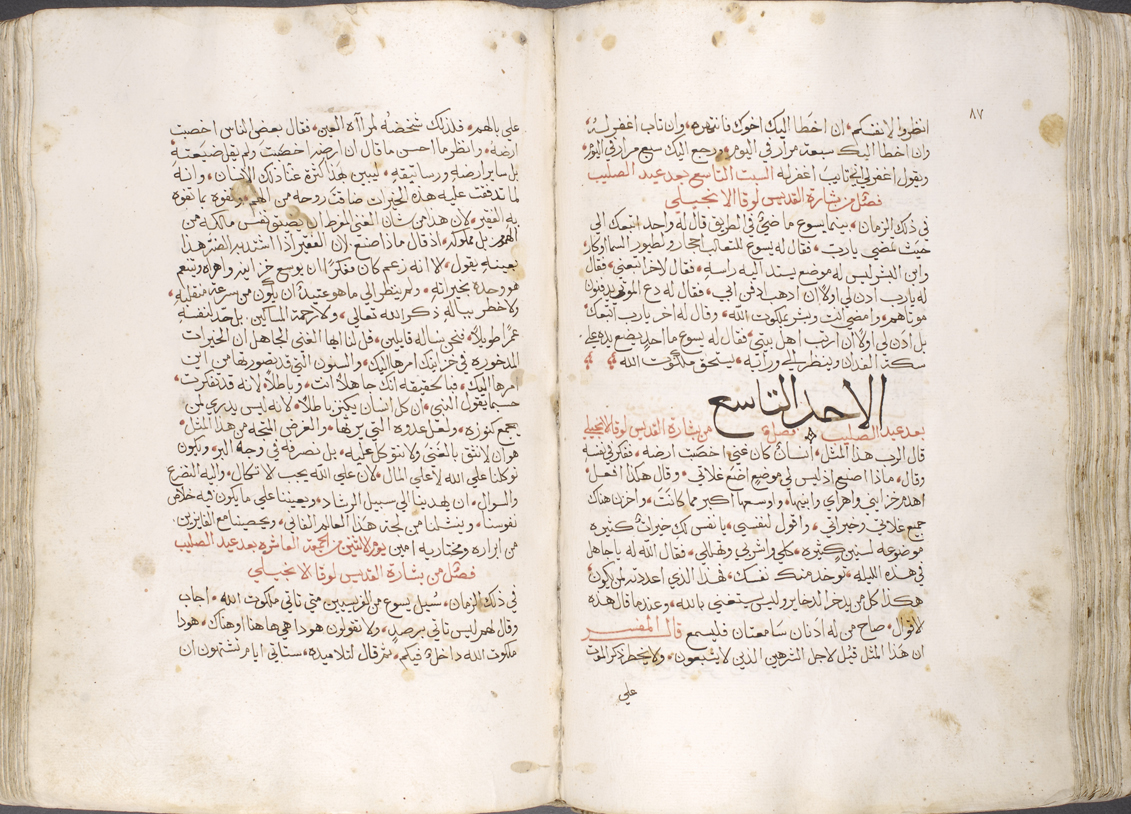 ٨٧
انظروا لانفسكم، ان اخطا اليك اخوك فانهره، وان تاب اغفر له،
وان اخطا اليك سبعة مرار في اليوم، ورجع اليك سبع مرار في اليوم
ويقول اغفر لي تايب اغفر له السبت التاسع بعد عيد الصليب
فصل من بشارة القديس لوقا الانجيلي
في ذلك الزمان، بينما يسوع ماضي في الطريق قال له واحد اتبعك الى
حيث تمضي يارب، فقال له يسوع للثعالب احجار ولطيور السما وكار
وابن البشر ليس له موضع يسند اليه راسه، فقال لاخر اتبعني، فقال
له يارب ادن لي اولا ان ادهب ادفن ابي، فقال له دع الموتى يدفنون
موتاهم، وامضي انت وبشر بملكوت الله، وقال له اخر يارب اتبعك
بل ادن لي اولا ان ارتب اهل بيتي، فقال له يسوع ما احد يضع يده على
سكة الفدان وينظر الى ورائه، يستحق ملكوت الله
الاحد التاسع
بعد عيد الصليب فصل من بشارة القديس لوقا الانجيلي
قال الرب هذا المثل، انسان كان غني اخصبت ارضه، ففكر في نفسه
وقال، ماذا اصنع اذ ليس لي موضع اضع غلاتي، وقال هكذا افعل،
اهدم خزايني واهراي وابنيها، واوسعها اكبر مما كانت، واخزن هناك
جميع غلاتي وخيراتي، واقول لنفسي، يانفس لك خيرات كثيره
موضوعه لسنين كثيره، كلي واشربي وتهللي، فقال الله له ياجاهل
في هذه الليله، توخد منك نفسك، فهذا الذي اعددته لمن يكون،
هكذا كل من يدخر الدخاير وليس يستغني بالله، وعندما قال هذه
لاقوال، صاح من له اذنان سامعتان فليسمع قال المفسر
ان هذا المثل قيل لاجل الشرهين الذين لا يشبعون، ولا يخطر ذكر الموت
على
على بالهم، فلذلك شخصه لمرآه العين، فقال بعض الناس اخصبت
ارضه، وانظر ما احسن ما قال ان ارضه اخصبت ولم يقل ضيعته
بل ساير ارضه ورساتيقه، ليبين بهذا كثرة غنا ذلك الانسان، وانه
لما تدفقت عليه هذه الخيرات ضاقت روحه من الهم، وتفوه بما تفوه
به الفقير، لان هذا من شان الغني المفرط ان يضيق نفس مالكه من
الهموم بل مملوكه، اذ قال ماذا اصنع لان الفقير اذا اشتد به الضر هذا
بعينه يقول، لا انه زعم كان مفكرا ان يوسع خزاينه واهراه ويتنعم
هو وحده بخيراته، ولم ينظر الى ما هو عتيد ان يكون من سرعة منقلبه
ولا خطر بباله ذكر الله تعالى، ولا رحمة المساكين، بل حد لنفسه
عمرا طويلا، فنحن نساله قايلين، قل لنا ايها الغني الجاهل ان الخيرات
المذخوره في خزاينك امرها اليك، والسنون التي قد تصورتها من اين
امرها اليك، فبالحقيقه انك جاهلا انت، وباطلا لانه قد تفكرت،
حسبما يقول النبي، ان كل انسان يكنز باطلا، لانه ليس يدري لمن
يجمع كنوزه، ولعل عدوه التي يرثها، والغرض المتجه من هذا المثل،
هو ان لا نثق بالغنى ولا نتوكل عليه، بل نصرفه في وجه البر، ويكون
توكلنا على الله لا على المال، لان على الله يجب لاتكال، واليه التضرع
والسوال، ان يهدينا الى سبيل الرشاد، ويعيننا على ما يكون فيه خلاص
نفوسنا، وينشلنا من لجة هذا العالم الفاني، ويحصينا مع الفايزين
من ابراره ومختاريه امين يوم الاثنين من الجمعه العاشره بعد عيد الصليب
فصل من بشارة القديس لوقا الانجيلي
في ذلك الزمان، سيل يسوع من الفريسيين متى تاتي ملكوت الله، اجاب
وقال لهم ليس تاتي برصد، ولا تقولون هودا هي هاهنا او هناك، هودا
ملكوت الله داخل فيكم، ثم قال لتلاميذه، ستاتي ايام تشتهون ان